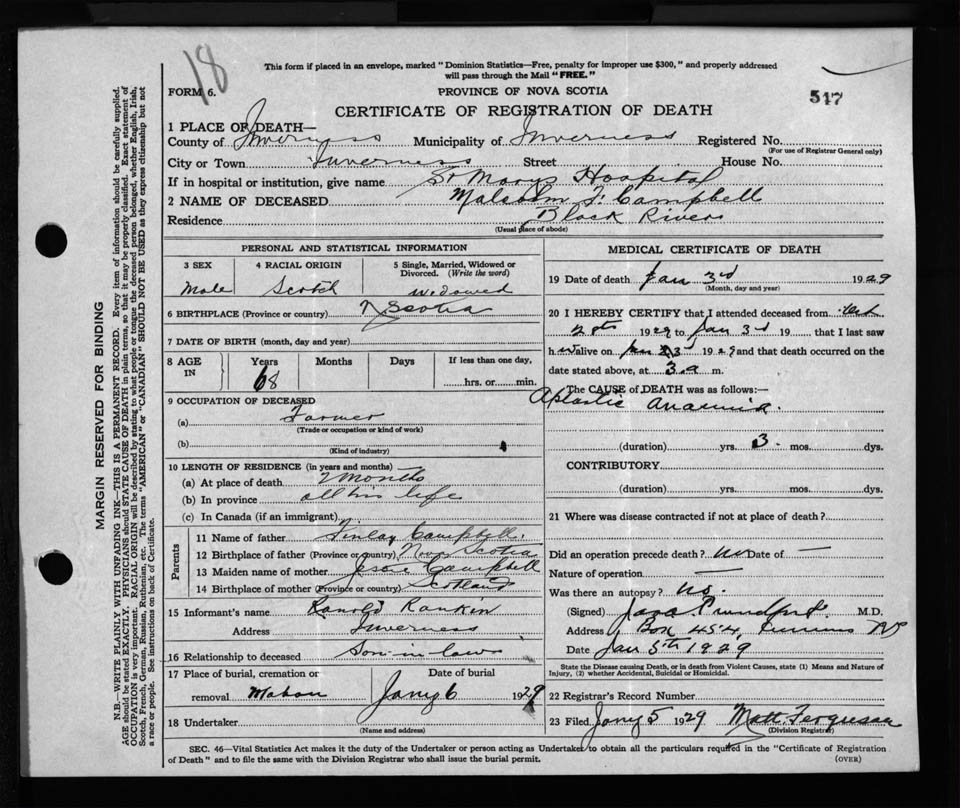 18
This form if placed in an envelope, marked "Dominion Statistics—Free, penalty for improper use $300," and properly addressed
will pass through the Mail "FREE."
FORM 6.
PROVINCE OF NOVA SCOTIA
517
CERTIFICATE OF REGISTRATION OF DEATH
1 PLACE OF DEATH—
County of Inverness Municipality of Inverness Registered No.
(For use of Registrar General only)
City or Town Inverness Street House No.
If in hospital or institution, give name St Marys Hospital
2 NAME OF DECEASED Malcolm F. Campbell
Residence Black River
(Usual place of abode)
PERSONAL AND STATISTICAL INFORMATION
3 SEX
4 RACIAL ORIGIN
5 Single, Married, Widowed or
Divorced. (Write the word)
Male
Scotch
widowed
6 BIRTHPLACE (Province or country) N Scotia
7 DATE OF BIRTH (month, day and year)
8 AGE
IN
Years
Months
Days
If less than one day,
68
hrs. or min.
9 OCCUPATION OF DECEASED
(a) Farmer
(Trade or occupation or kind of work)
(b)
(Kind of industry)
10 LENGTH OF RESIDENCE (in years and months)
(a) At place of death 2 months
(b) In province all his life
(c) In Canada (if an immigrant)
Parents
11 Name of father Finlay Campbell
12 Birthplace of father (Province or country) Nova Scotia
13 Maiden name of mother Campbell
14 Birthplace of mother (Province or country) Scotland
15 Informant's name Ranold Rankin
Address Inverness
16 Relationship to deceased Son-in-law
17 Place of burial, cremation or
removal Mabou
Date of burial
Jany 6 1929
18 Undertaker
(Name and address)
MEDICAL CERTIFICATE OF DEATH
19 Date of death Jan 3rd 1929
(Month, day and year)
20 I HEREBY CERTIFY that I attended deceased from
1929 to Jan 3rd 19 that I last saw
h im alive on Jan 3rd 1929 and that death occurred on the
date stated above, at 3 a m.
The CAUSE of DEATH was as follows:—
Aplastic Anaemia.
(duration) yrs. 3 mos. dys.
CONTRIBUTORY
(duration) yrs. mos. dys.
21 Where was disease contracted if not at place of death?
Did an operation precede death? no Date of —
Nature of operation —
Was there an autopsy? no.
(Signed) M.D.
Address Box 454, Inverness NS
Date Jan 5th 1929
State the Disease causing Death, or in death from Violent Causes, state (1) Means and Nature of
Injury, (2) whether Accidental, Suicidal or Homicidal.
22 Registrar's Record Number
23 Filed Jany 5 1929 Matt Ferguson
(Division Registrar)
SEC. 46—Vital Statistics Act makes it the duty of the Undertaker or person acting as Undertaker to obtain all the particulars required in the "Certificate of Registration
of Death" and to file the same with the Division Registrar who shall issue the burial permit.
(OVER)
MARGIN RESERVED FOR BINDING
N.B.—WRITE PLAINLY, WITH UNFADING INK—THIS IS A PERMANENT RECORD. Every item of information should be carefully supplied.
AGE should be stated EXACTLY. PHYSICIANS should STATE CAUSE OF DEATH in plain terms, so that it may be properly classified. Exact statement of
OCCUPATION is very important. RACIAL ORIGIN will be described by stating to what people or tongue the deceased person belonged, whether English, Irish,
Scotch, French, German, Russian, Ruthenian, etc. The terms "AMERICAN" or "CANADIAN" SHOULD NOT BE USED as they express citizenship but not
a race or people. See instructions on back of Certificate.